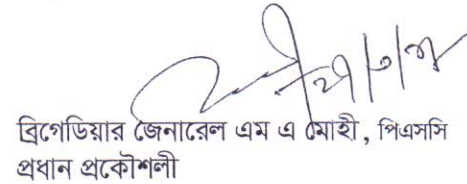 ব্রিগেডিয়ার জেনারেল এম এ মোহী, পিএসসি
প্রধান প্রকৌশলী